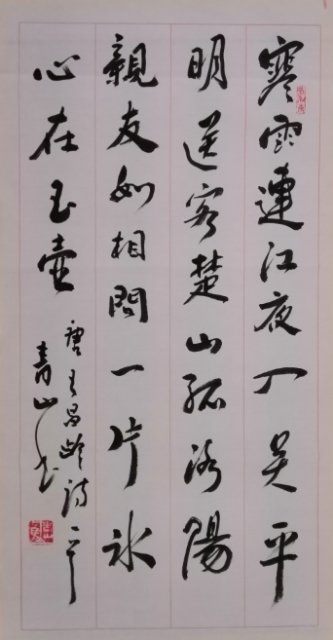 寒雨連江夜入吳平
明送客楚山孤洛陽
親友如相問一片冰
心在玉壺
唐王昌齡詩一首
青山书